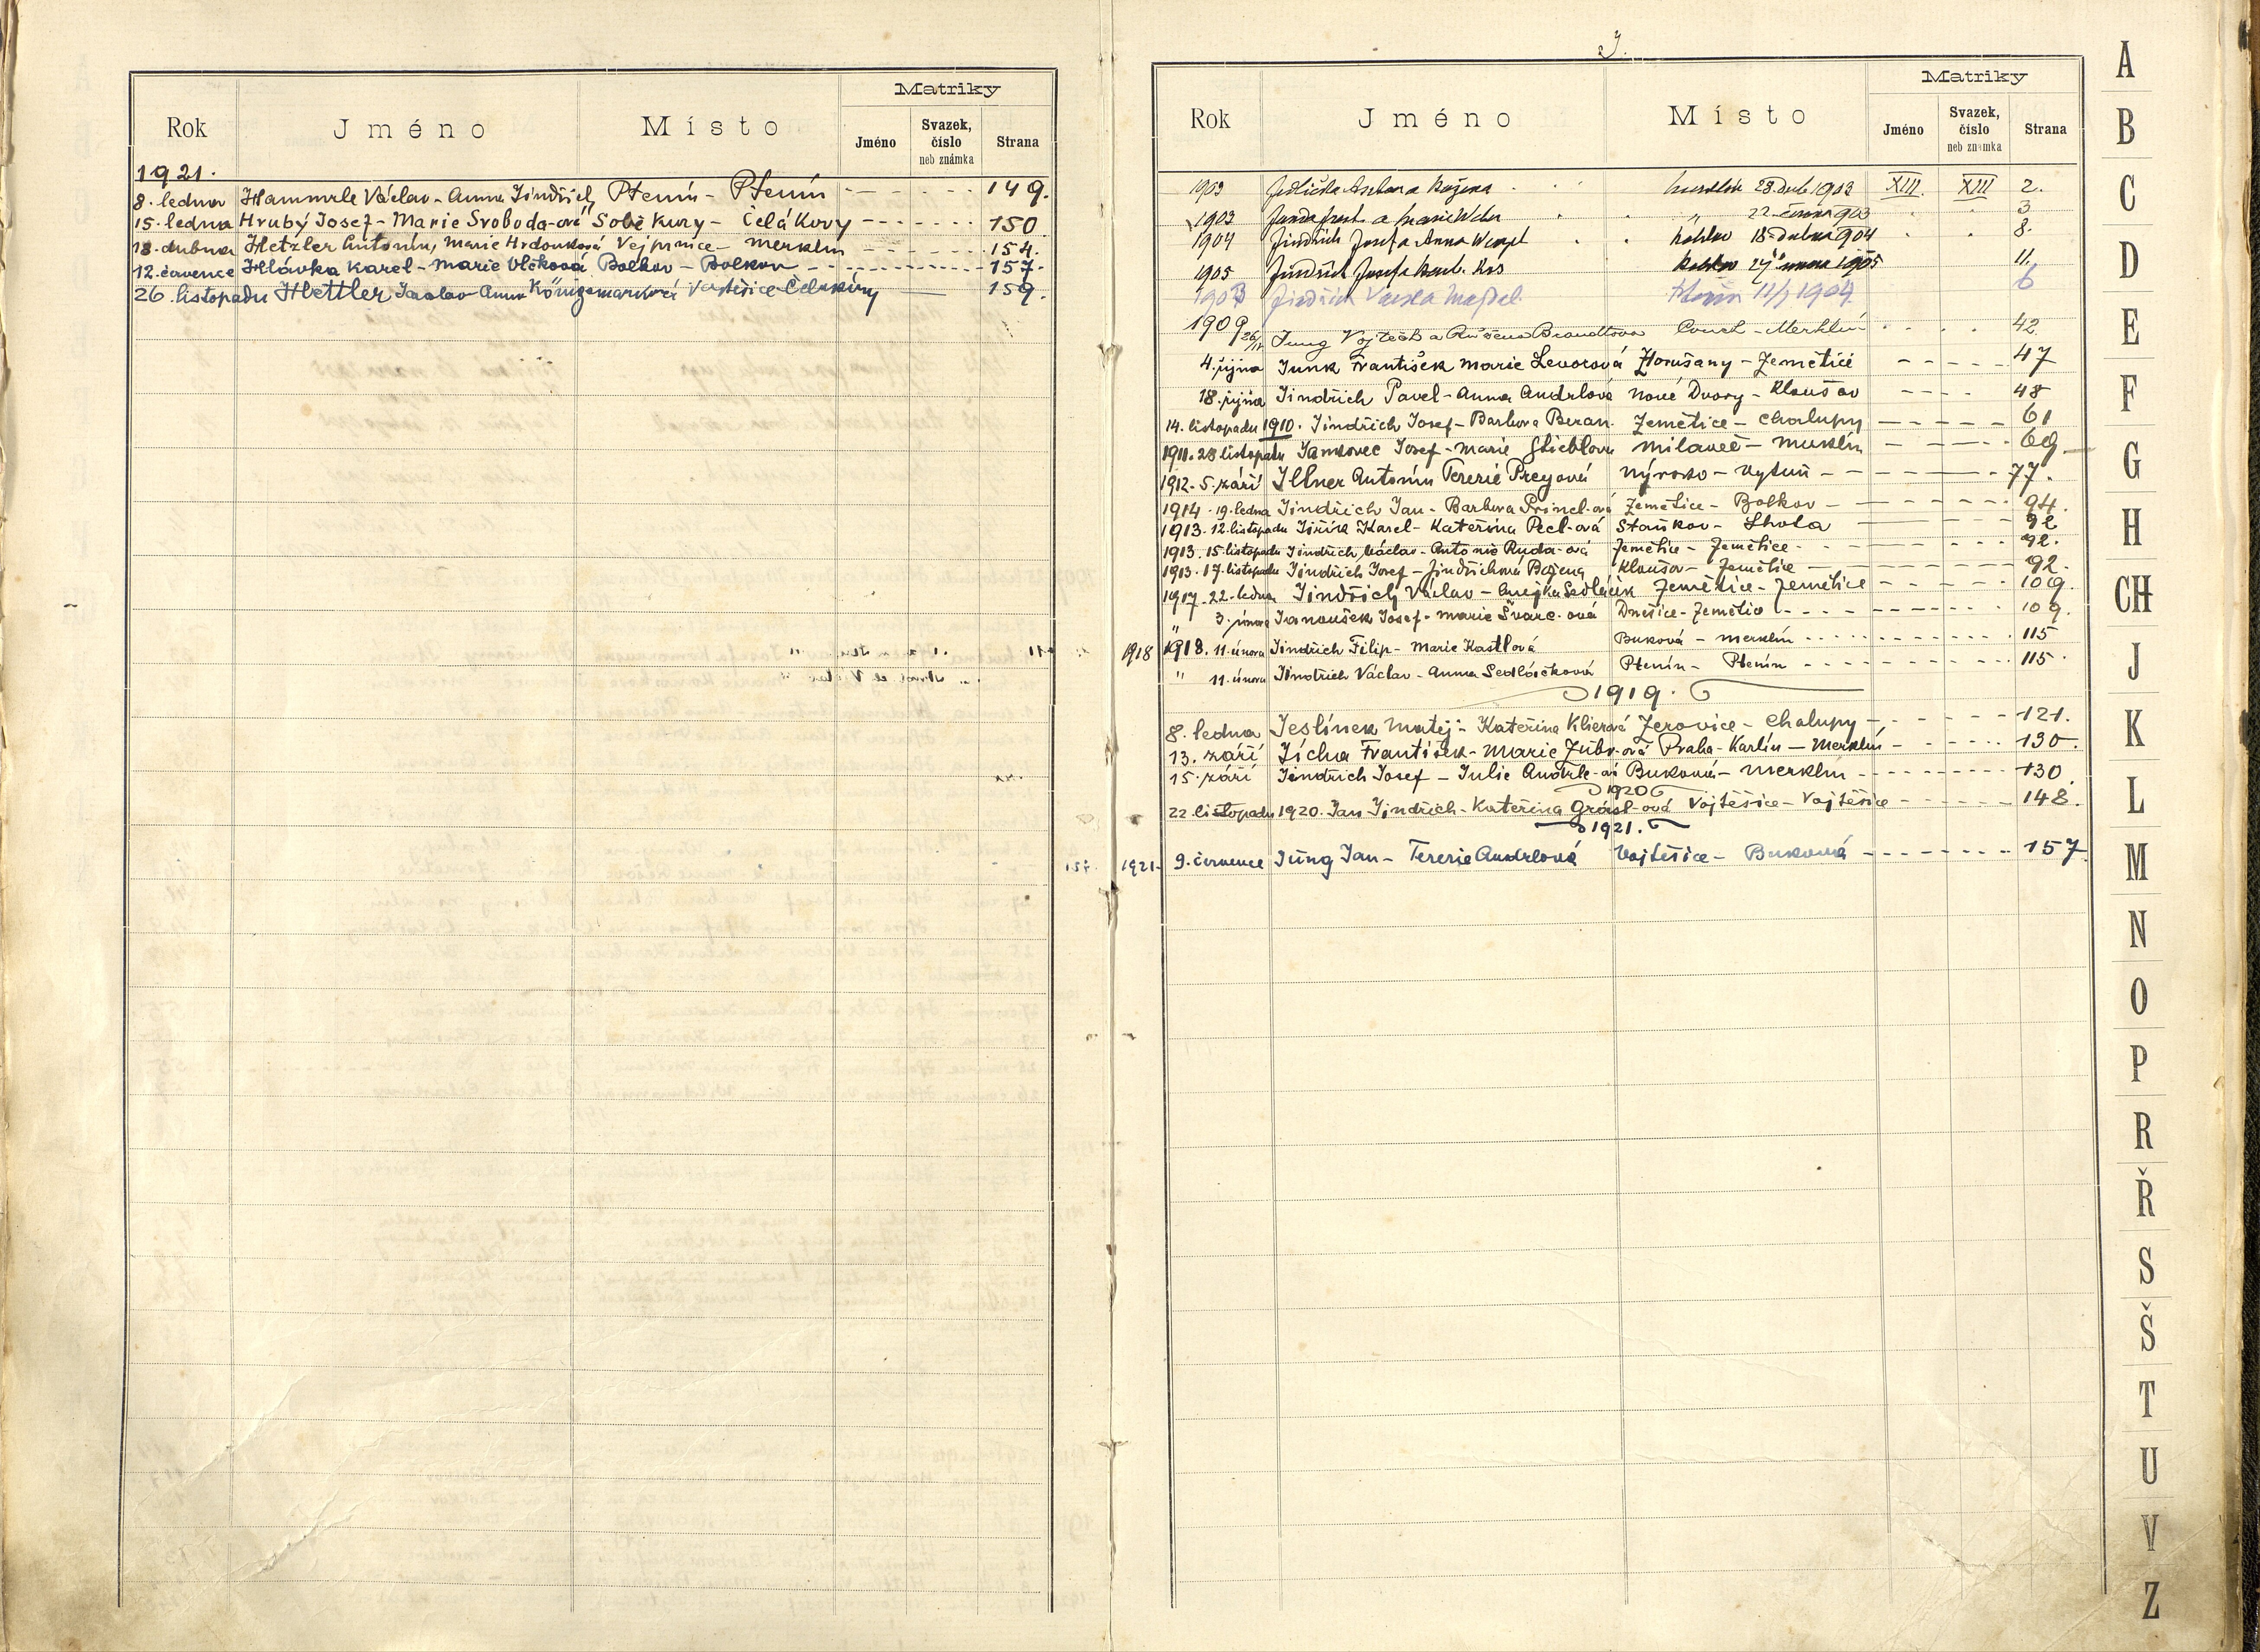 Rok Jméno Místo Matriky
Jméno Svazek, číslo neb známka Strana
1921.
8. ledna Hammrle Václav - Anna Jindřich Ptenín - Ptenín 149.
15. ledna Hrubý Josef - Marie Svoboda-ová Soběkury - Čelákovy 150.
18. dubna Hetzler Antonín, Marie Hrdonková Vejprnice - Merklín 154.
12. července Hlávka Karel - Marie Vlčková Bolkov - Bolkov 157.
26. listopadu Hettler Anna Königsmarková 159.
J.
Rok Jméno Místo Matriky
Jméno Svazek, číslo neb známka Strana
1903 Jedlička a Božena 28. dub 1903 XIII. XIII 2.
1903 a Marie 22. června 903 3
1904 Jindřich Josef a Anna 18. dubna 904 8.
1905 Jindřich Josef a 27 února 1905 11.
1903 Jindřich 11/7 1904. 6
1909 26/11 Jung Vojtěch a Růžena Brandtova - Merklín 42
4. října Junk František Marie Levorová Horušany - Zemětice 47
18. října Jindřich Pavel - Anna Andrlová Nové Dvory - Kloušov 48
14. listopadu 1910. Jindřich Josef - Barbora Beran. Zemětice - Chalupy 61
1911. 28 listopadu Jankovec Josef - Marie Milaveč - Merklín 69
1912. 5. září Illner Antonín Terezie Preyová Nýrsko - Vytuň 77.
1914. 19. ledna Jindřich Jan - Barbora Princl-ová Zemětice - Bolkov 94.
1913. 12. listopadu Jiřík Karel - Kateřina Pecl-ová Staňkov - Lhota 92
1913. 15. listopadu Jindřich Václav - Antonie Ruda-ová Zemětice - Zemětice 92.
1913. 17. listopadu Jindřich Josef - Jindřichová Božena Kloušov - Zemětice 92.
1917. 22. ledna Jindřich Václav - Anežka Sedláček Zemětice - Zemětice 109.
" 3. února Janoušek Josef - Marie Švarc-ová Dnešice - Zemětice 109.
1918 1918. 11. února Jindřich Filip - Marie Kastlová Buková - Merklín 115
" 11. února Jindřich Václav - Anna Sedláčková Ptenín - Ptenín 115
1919.
8. ledna Jeslínek Matěj - Kateřina Klierová Zerovice - Chalupy 121.
13. září Jícha František - Marie Zubr-ová Praha-Karlín - Merklín 130.
15. září Jindřich Josef - Julie Andrle-ová Buková - Merklín 130.
1920
22. listopadu 1920. Jan Jindřich - Kateřina Grössl-ová Vojtěšice - Vojtěšice 148.
1921.
1921. 9. července Jung Jan - Terezie Andrlová Vojtěšice - Buková 157.
A
B
C
D
E
F
G
H
CH
J
K
L
M
N
O
P
R
Ř
S
Š
T
U
V
Z